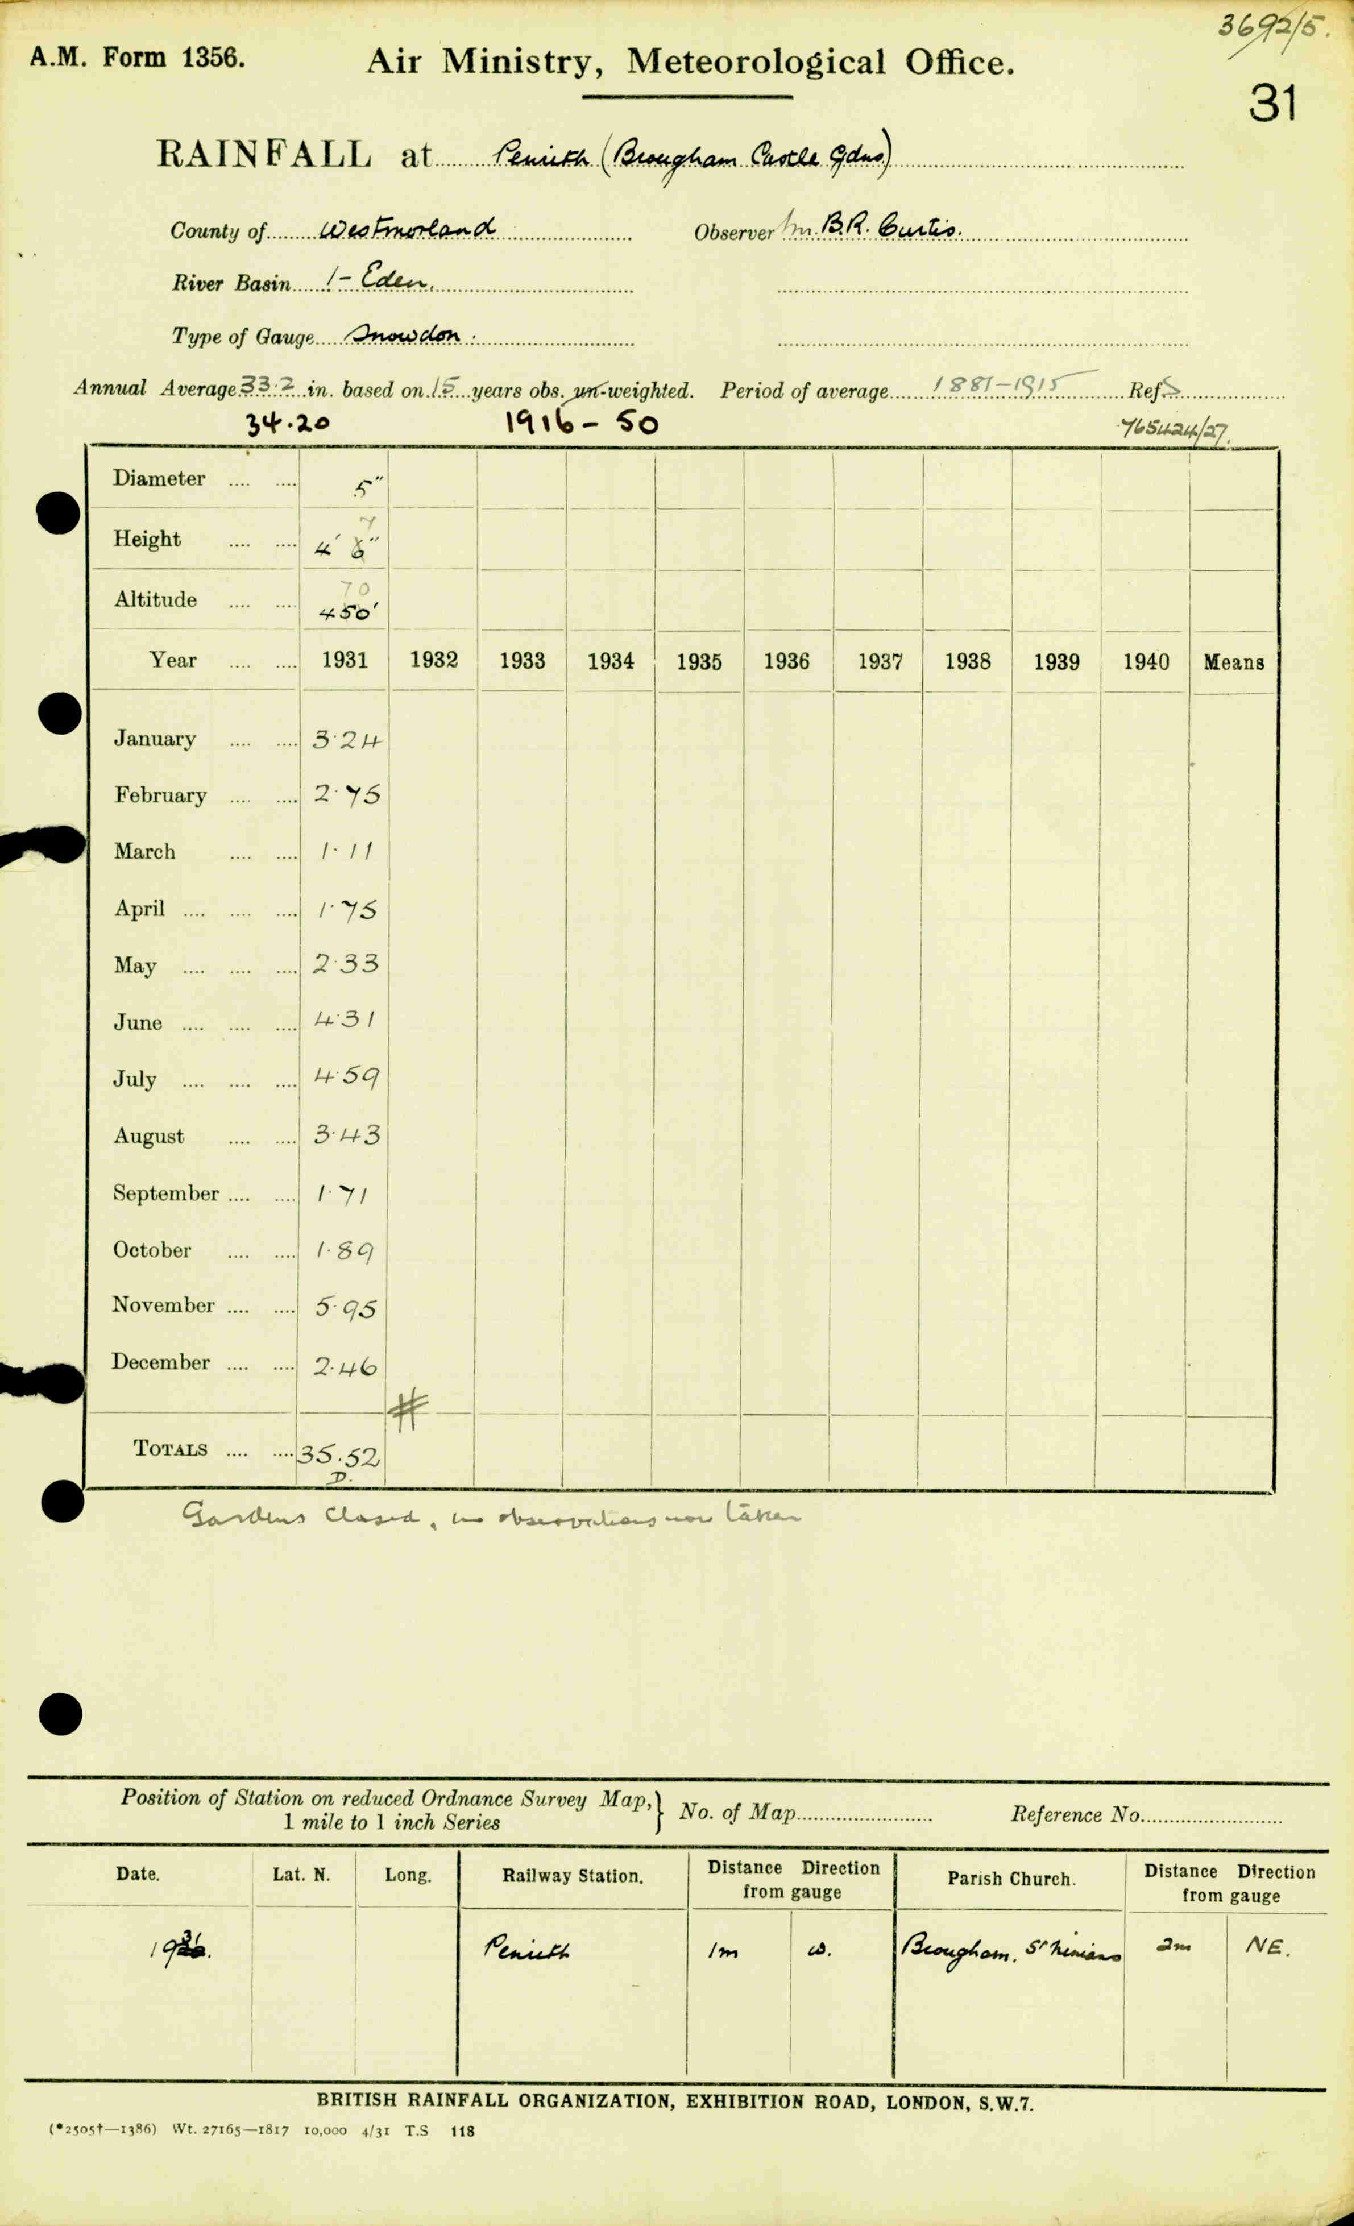 3692/5.
A.M. Form 1356. Air Ministry, Meteorological Office.
31
RAINFALL at Penrith (Brougham Castle Gdns)
County of Westmorland Observer Mr. B.R. Curtis.
River Basin 1 - Eden.
Type of Gauge Snowdon.
Annual Average 33.2 in. based on 15 years obs. un-weighted. Period of average 1881-1915 Ref. S
34.20 1916 - 50 765424/27.
Diameter .... .... 5"
7
Height .... .... 4' 6"
70
Altitude .... .... 450'
Year .... .... 1931 1932 1933 1934 1935 1936 1937 1938 1939 1940 Means
January .... .... 3.24
February .... .... 2.75
March .... .... 1.11
April .... .... .... 1.75
May .... .... .... 2.33
June .... .... .... 4.31
July .... .... .... 4.59
August .... .... 3.43
September .... .... 1.71
October .... .... 1.89
November .... .... 5.95
December .... .... 2.46
#
TOTALS .... .... 35.52
D.
Gardens closed, no observations now taken
Position of Station on reduced Ordnance Survey Map, } No. of Map Reference No.
1 mile to 1 inch Series
Date. Lat. N. Long. Railway Station. Distance Direction from gauge Parish Church. Distance Direction from gauge
1931. Penrith 1m W. Brougham, St Ninians 2m NE.
BRITISH RAINFALL ORGANIZATION, EXHIBITION ROAD, LONDON, S.W.7.
(*2505†—1386) Wt. 27165—1817 10,000 4/31 T.S 118